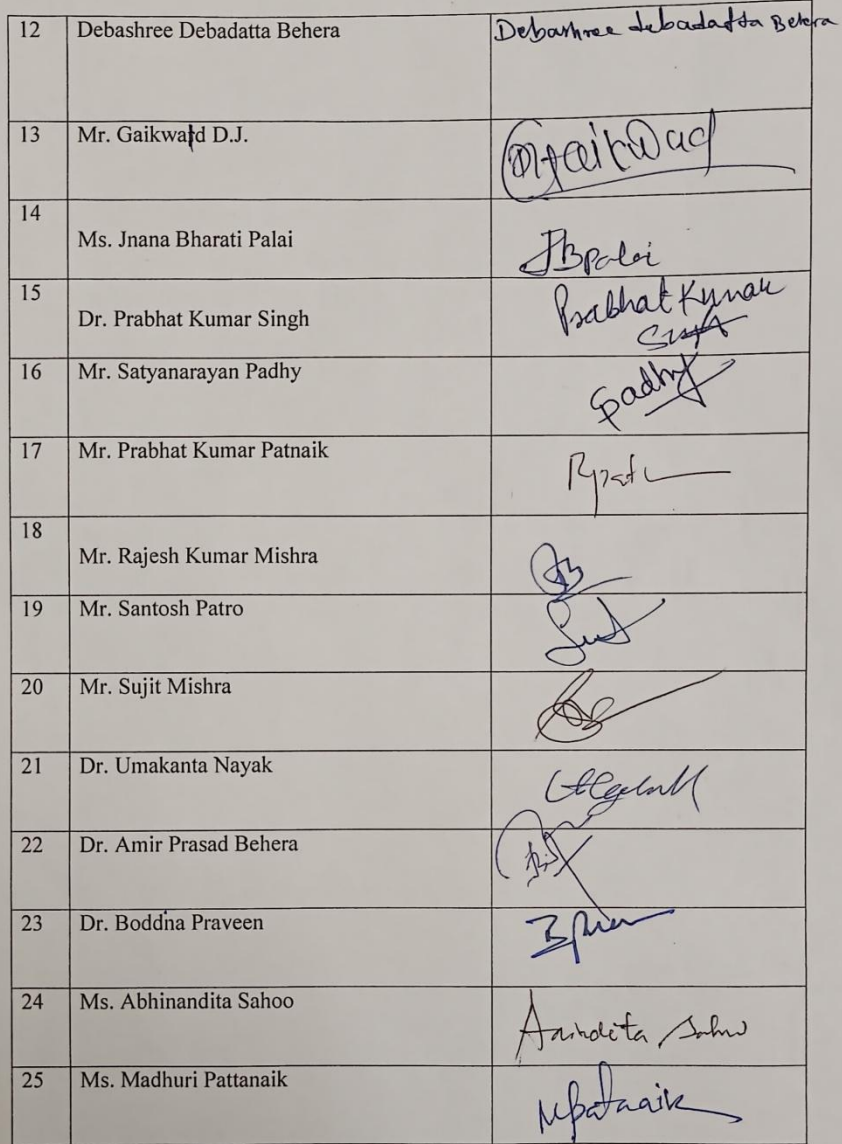 12 Debashree Debadatta Behera Debashree debadatta Behera
13 Mr. Gaikward D.J. Gaikwad
14
Ms. Jnana Bharati Palai JBPalai
15 Prabhat Kumar
Dr. Prabhat Kumar Singh
16 Mr. Satyanarayan Padhy SPadhy
17 Mr. Prabhat Kumar Patnaik
18
Mr. Rajesh Kumar Mishra
19 Mr. Santosh Patro
20 Mr. Sujit Mishra
21 Dr. Umakanta Nayak
22 Dr. Amir Prasad Behera
23 Dr. Boddna Praveen
24 Ms. Abhinandita Sahoo
25 Ms. Madhuri Pattanaik